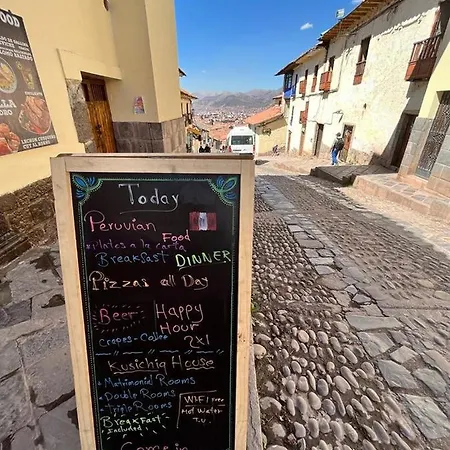 OOD
LLA
Today
Peruvian
Food
Platos a la carta
Breakfast DINNER
Pizzas all Day
Beer
Happy
Hour
2x1
Crepes-Coffee
Kusichiq House
Matrimonial Rooms
Double Rooms
Triple Rooms
Breakfast
Included
WIFI Free
Hot Water
T.V.
Come in